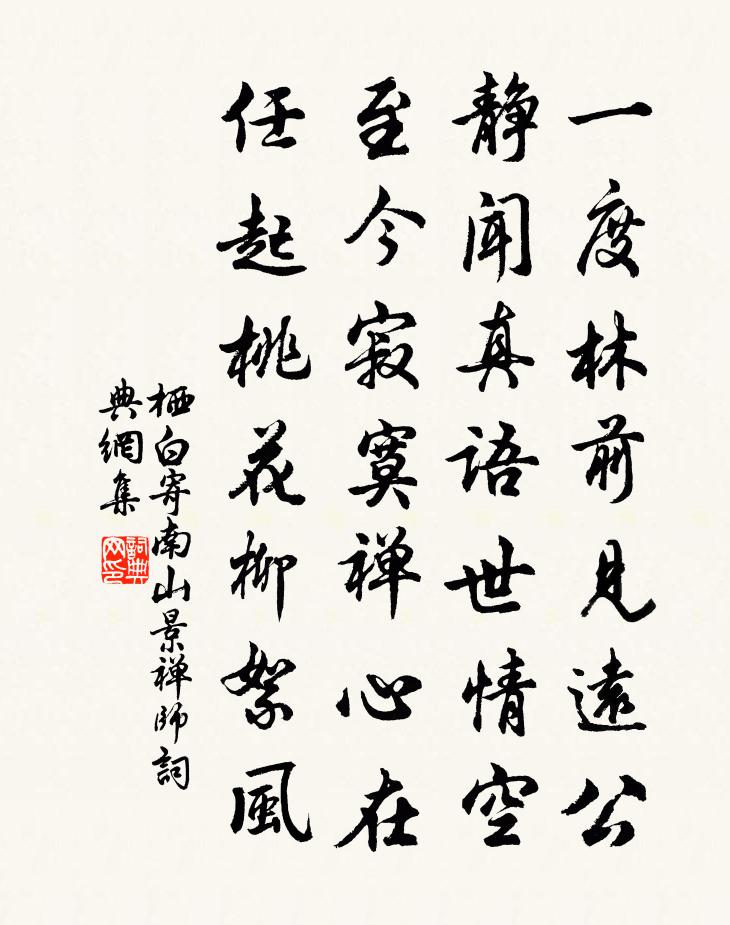 一度林前見遠公
静聞真語世情空
至今寂寞禅心在
任起桃花柳絮風
栖白寄南山景禅師詞
典網集
詞典网印